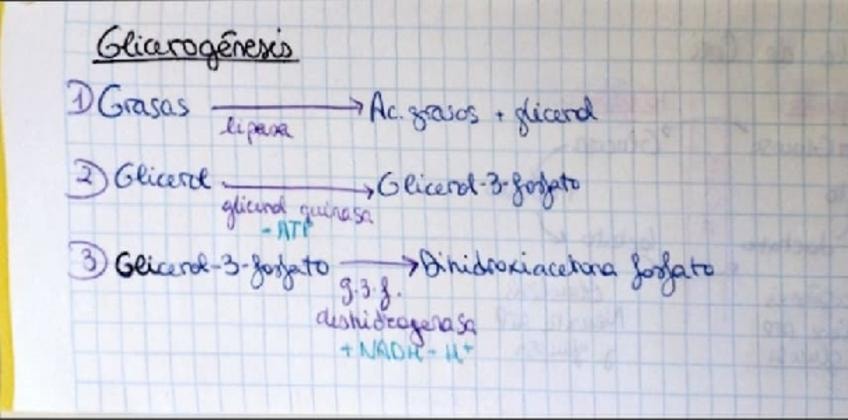 Glicerogénesis
1) Grasas → Ac. grasos + glicerol
lipasa
2) Glicerol → Glicerol-3-fosfato
glicerol quinasa
- ATP
3) Glicerol-3-fosfato → Dihidroxiacetona fosfato
g.3.f.
deshidrogenasa
+ NADH - H⁺